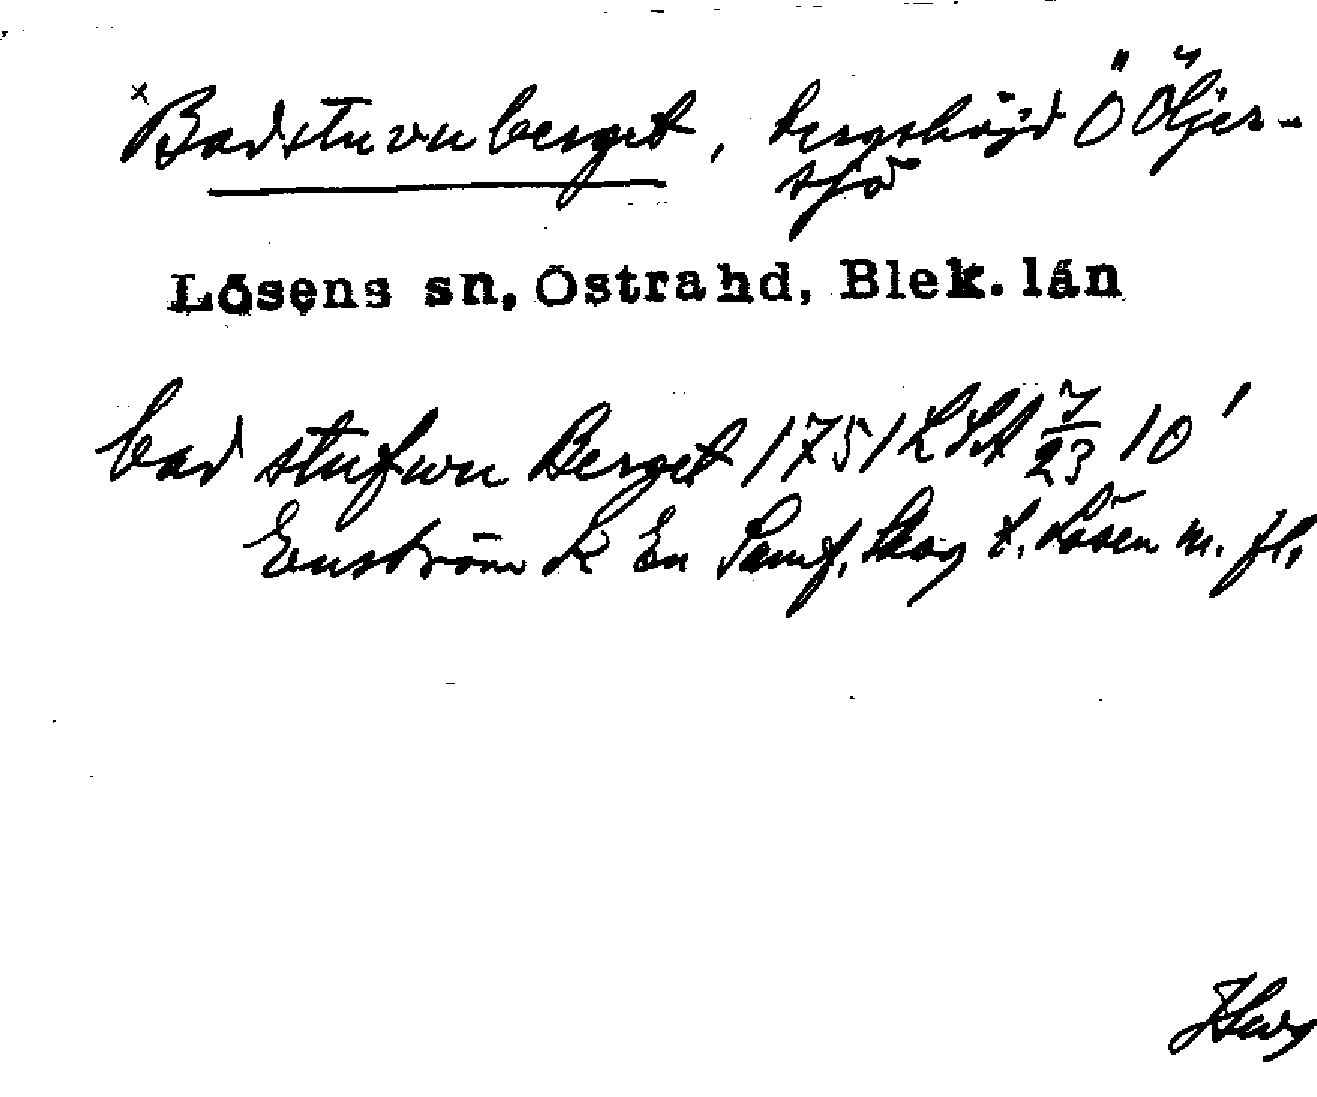 x Badstuvuberget, bergshöjd Ö Öljer-
sjö
Lösens sn, Östra hd, Blek. län
bad stufwu Berget 1751 LSA 7/23 10'
Enström K En Samf. Skog t. Lösen m. fl.